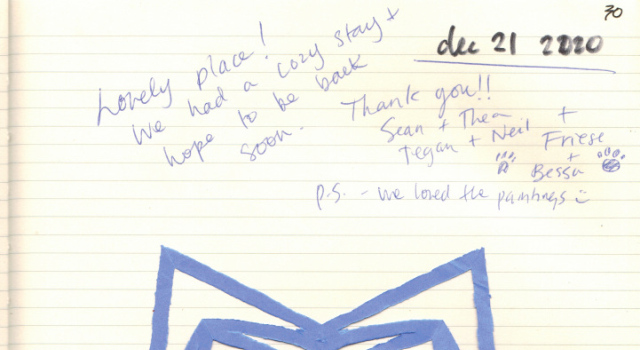 30
dec 21 2020
Lovely place!
We had a cozy stay +
hope to be back
soon.
Thank you!!
Sean + Thea +
Tegan + Neil Friese
+
Bessa
p.s. - we loved the paintings